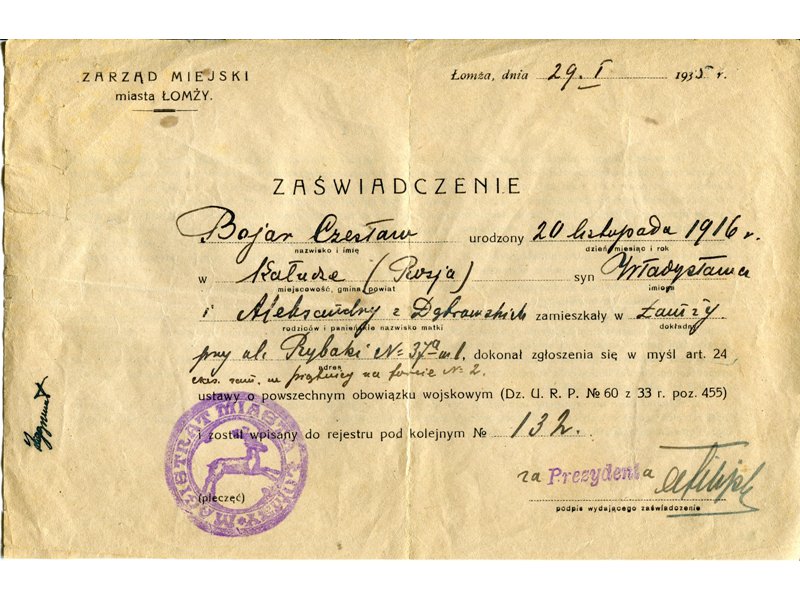 ZARZĄD MIEJSKI
miasta ŁOMŻY.
Łomża, dnia 29. I 1935 r.
ZAŚWIADCZENIE
Bojar Czesław urodzony 20 listopada 1916 r.
nazwisko i imię dzień miesiąc i rok
w Kałudze (Rosja) syn Władysława
miejscowość, gmina powiat imiona
i Aleksandry z Dąbrowskich zamieszkały w Łomży
rodziców i panieńskie nazwisko matki dokładny
przy ul. Rybaki № 37a m 1, dokonał zgłoszenia się w myśl art. 24
adres
na forcie № 2.
ustawy o powszechnym obowiązku wojskowym (Dz. U. R. P. № 60 z 33 r. poz. 455)
i został wpisany do rejestru pod kolejnym № 132.
MAGISTRAT MIASTA ŁOMŻY
(pieczęć)
za Prezydenta
podpis wydającego zaświadczenie
Zygmunt